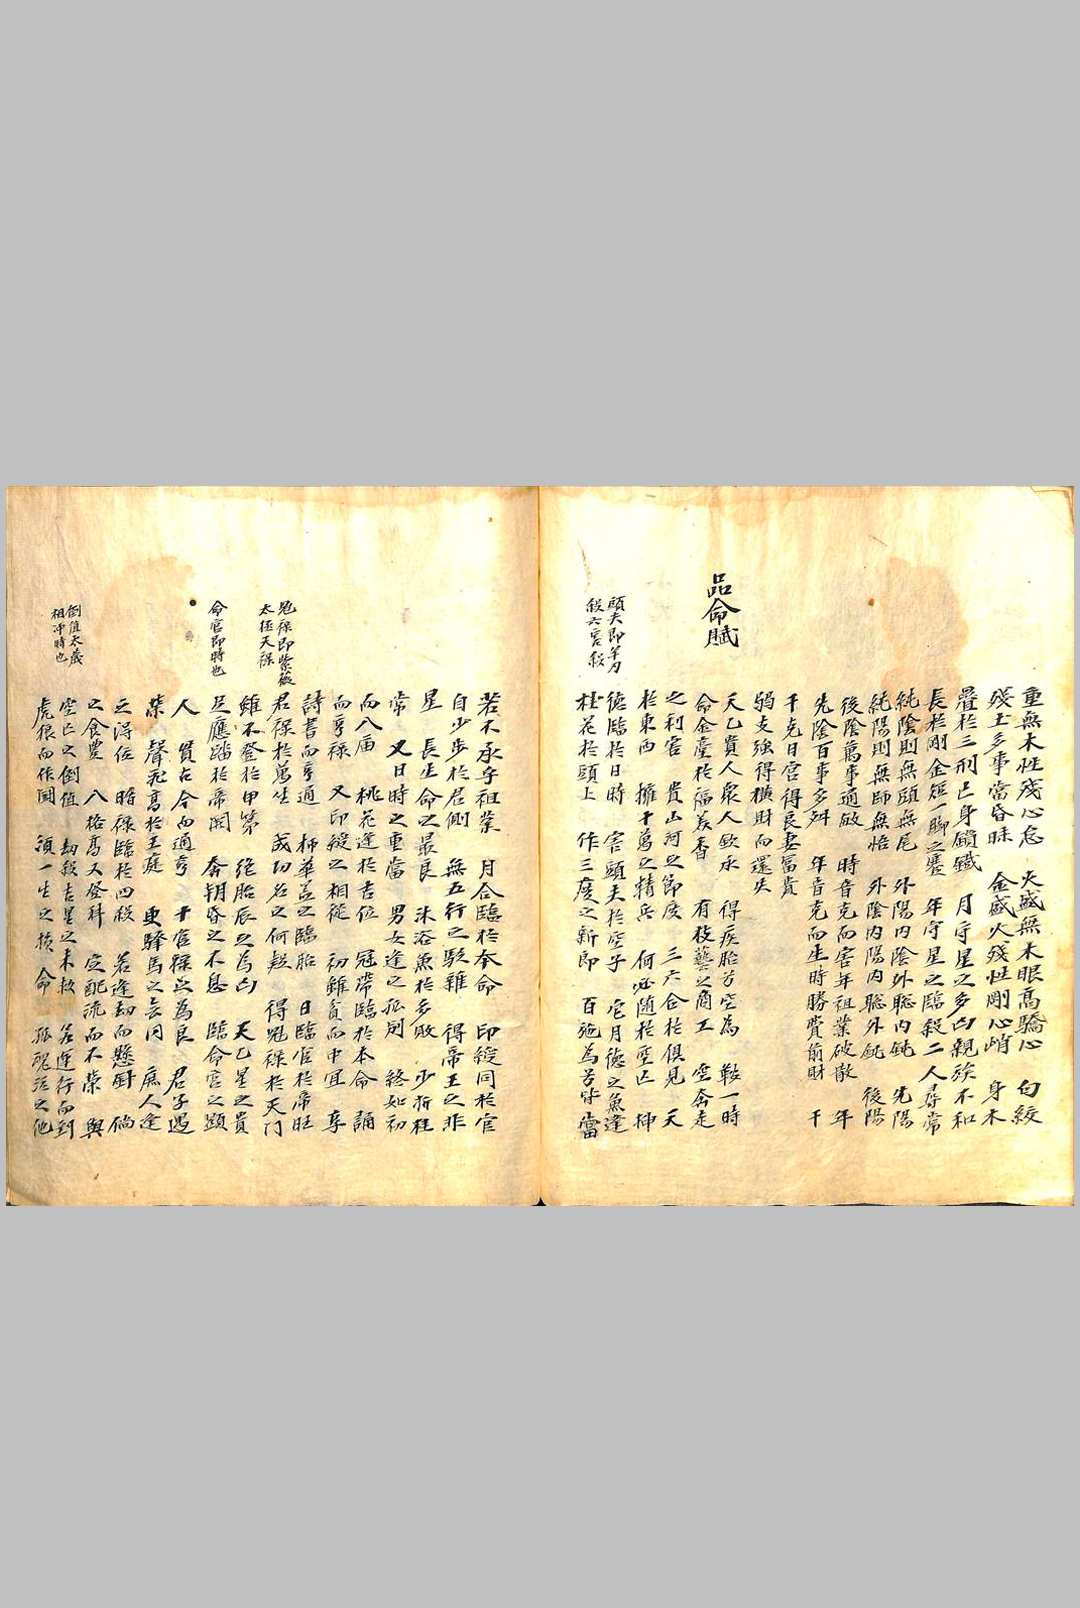 重無木性殘心急 火盛無木眼高驕心 句絞
殘土多事當昏昧 金盛火殘性剛心峭 身木
疊於三刑己身鑕鑯 月守星之多凶親族不和
長於剛金短一脚之蹇 年守星之臨殺二人尋常
純陰則無頭無尾 外陽内陰外聡内鈍 先陽
純陽則無師無悟 外陰内陽内聡外鈍 後陽
後陰萬事通敏 時音克而害年祖業破散 年
先陰百事多舛 年音克而生時勝費前財 干
干克日宮得良妻富貴
弱支強得橫財而還失
品命賦
天乙貴人衆人欽永 得疾胎苦空為 鞍一時
命金臺於福美香 有技藝之商工 空奔走
之利官 貴山河之節度 三六合於俱見 天
於東西 擁十萬之精兵 何必随於空亡 挿
頭夫即羊刃
殺六害殺
德臨於日時 害頭夫於空子 宅月德之魚逢
桂花於頭上 作三度之新郎 百施為苦皆當
若不承乎祖業 月合臨於本命 印綬同於官
自少步於君側 無五行之駁雜 得帝王之非
星 長生命之最良 沐浴魚於多敗 少折桂
常 又日時之重當 男女逢之孤刑 終如初
而八庙 桃花逢於吉位 冠帶臨於本命 誦
而亨禄 又印綬之相從 初雖貧而中宜 享
詩書而亨通 柿華盖之臨胎 日臨官於帝旺
鬼禄即紫薇
太極天禄
君禄於萬生 成功名之何疑 得鬼禄於天门
雖不登於甲第 絶胎辰之為凶 天乙星之貴
命官即時也
足應踏於帝闕 奔朝昏之不息 臨命官之題
人 貫古今而通亨 十官禄之為良 君子遇
榮 聲永高於王庭 更驛馬之去同 庶人逢
之得位 暗禄臨於四殺 若逢劫而懸厨 倘
之食豊 八格高又登科 定配流而不榮 與
倒值太歲
相冲時也
空亡之倒值 劫殺吉星之未救 若運行而到
虎狼而作闘 須一生之損命 孤魂泣之他